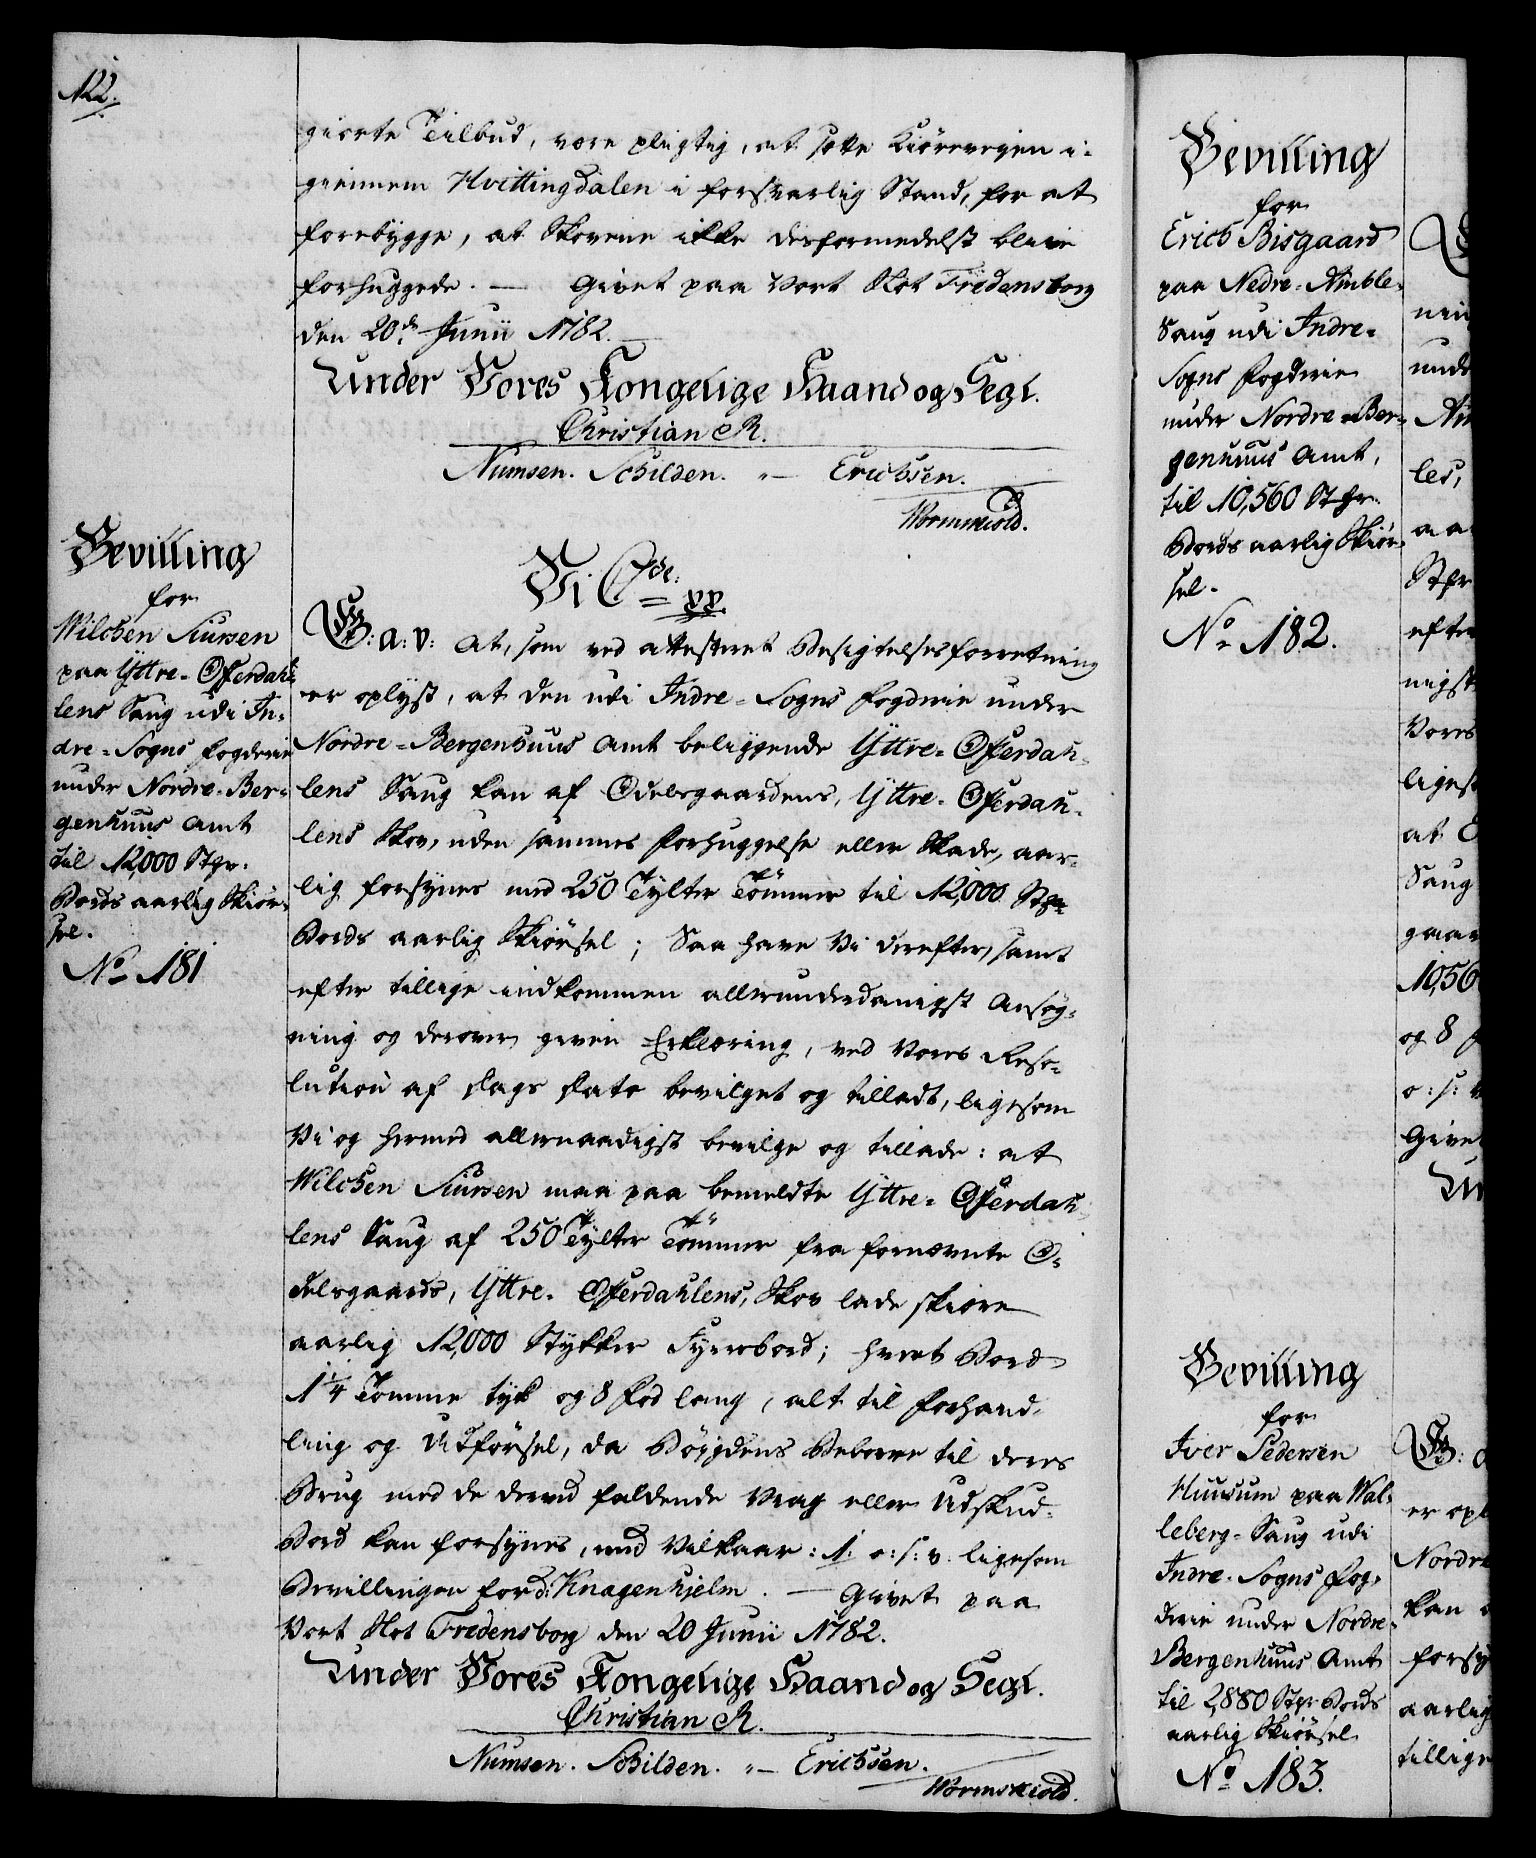 122.
giorte Tilbud, være pligtig, at sætte Kiöreveien i-
giennem Hvittingdalen i forsvarlig Stand, for at
forebygge, at Skovene ikke derformedelst blive
forhuggede. — Givet paa Vort Slot Fredensborg
den 20de Junii 1782.
Under Vores Kongelige Haand og Segl.
Christian R.
Numsen. Schilden. — Erichsen.
Wormskiold.
Bevilling
for
Wilchen Siursen
paa Yttre-Oferdah-
lens Saug udi In-
dre-Sogns Fogderie
under Nordre-Ber-
genhuus Amt
til 12,000 Stkr.
Bords aarlig Skiör-
sel.
No 181
Vi C 7de: pp.
G: A: V: At, som ved attesteret Besigtelsesforretning
er oplyst, at den udi Indre-Sogns Fogderie under
Nordre-Bergenhuus Amt beliggende Yttre-Oferdah-
lens Saug kan af Odelsgaardens, Yttre-Oferdah-
lens Skov, uden sammes Forhuggelse eller Skade, aar-
lig forsynes med 250 Tylter Tömmer til 12,000 Stkr
Bords aarlig Skiörsel; Saa have Vi derefter, samt
efter tillige indkommen allerunderdanigst Ansög-
ning og derover given Erklæring, ved Vores Reso-
lution af Dags Dato bevilget og tilladt, ligesom
Vi og hermed allernaadigst bevilge og tillade: at
Wilchen Siursen maa paa bemeldte Yttre-Oferdah-
lens Saug af 250 Tylter Tömmer fra fornævnte O-
delsgaards, Yttre-Oferdahlens, Skov lade skiære
aarlig 12,000 Stykker Fyrrebord; hvert Bord
1 1/4 Tomme tyk og 8 Fod lang, alt til Forhand-
ling og Udförsel, da Böygdens Beboere til deres
Brug med de derved faldende Vrag eller Udskud-
Bord kan forsynes, med Vilkaar: 1: o: s: v: ligesom
Bevillingen for d: Knagenhjelm. — Givet paa
Vort Slot Fredensborg den 20 Junii 1782.
Under Vores Kongelige Haand og Segl.
Christian R.
Numsen. Schilden. — Erichsen.
Wormskiold.
Bevilling
for
Erich Bisgaard
paa Nedre-Amble-
Saug udi Indre-
Sogns Fogderie
under Nordre-Ber-
genhuus Amt,
til 10,560 Stkr.
Bords aarlig Skiör-
sel.
No 182.
Bevilling
for
Iver Pedersen
Huusum paa Wal-
leberg-Saug udi
Indre-Sogns Fog-
derie under Nordre-
Bergenhuus Amt
til 2,880 Stkr Bords
aarlig Skiörsel
No 183.
unde
les,
aa
Stkr
efter
nigst
Vores
liges
at
Saug
gaar
10,56
og 8
o: s:
Givet
Un
er opl
Nordre
kan
forsy
aarlig
tillige